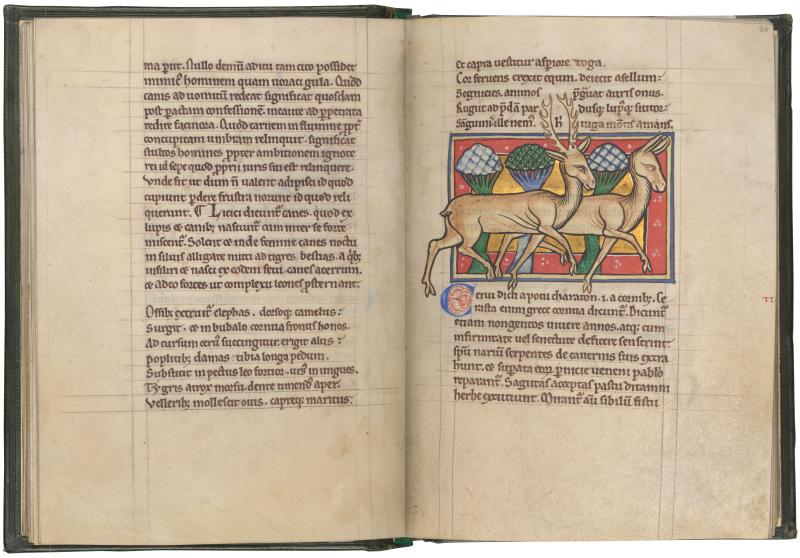 ma prit. Nullo demũ aditu tam cito possidet
inimicꝰ hominem quam uoraci gula. Quod
canis ad uomitũ redeat significat quosdam
post pactam confessionẽ incaute ad ꝑpetrata
redire facinora. Quod carnem in flumine ꝓpt̃
concupitam umbram relinquit. significat
stultos homines ꝓpter ambitionem ignote
rei id sepe quod ꝓprii iuris sui est relinquere.
Unde fit ut dum ñ ualent adipisci id quod
cupiunt ꝑdere frustra norunt id quod reli
querunt. ¶ Licici dicunt̃ canes. quod ex
lupis et canibꝫ nascunt̃ cum inter se forte
miscent̃. Solent et inde femine canes noctu
in siluis alligate mitti ad tigres bestias. a qͥbꝫ
insiliri et nasci ex eodem fetu canes acerrim.
et adeo fortes ut complexu leones ꝓsternant.
Ossibꝫ extruit̃ elephas. dorsoqꝫ camelus:
Surgit. et in bubalo cornua frontis honos.
Ad cursum ceruꝰ succingitur. erigit altis:
Poplitibꝫ damas. tibia longa pedum.
Substitit in pectus leo fortior. ursꝰ in ungues.
Tygris atrox morsu. dente timendꝰ aper.
Velleribꝫ mollescit ouis. capreqꝫ maritus:
30
Et capra uestitur asꝑiore toga.
Cor feruens erexit equm. deiecit asellum:
Segnicies. animos p̃grauat auris onus.
Rugit ad p̃dã pardusqꝫ lupꝰqꝫ sititor
Sãguinis ille nemꝰ. hͨ iuga montis amans.
Cerui dicti apo tu charaton .i. a cornibꝫ. Ce
rasta enim grece cornua dicunt̃. Dicunt̃
etiam nongentos uiuere annos. atqꝫ cum
infirmitate uel senectute deficere senserint
sp̃u nariũ serpentes de cauernis suis extra
hunt. et suꝑata eorꝝ ꝑnicie ueneni pablo
reparant̃. Sagittas acceptas pastu ditamni
herbe excutiunt. Mirant̃ aũ sibilũ fistu